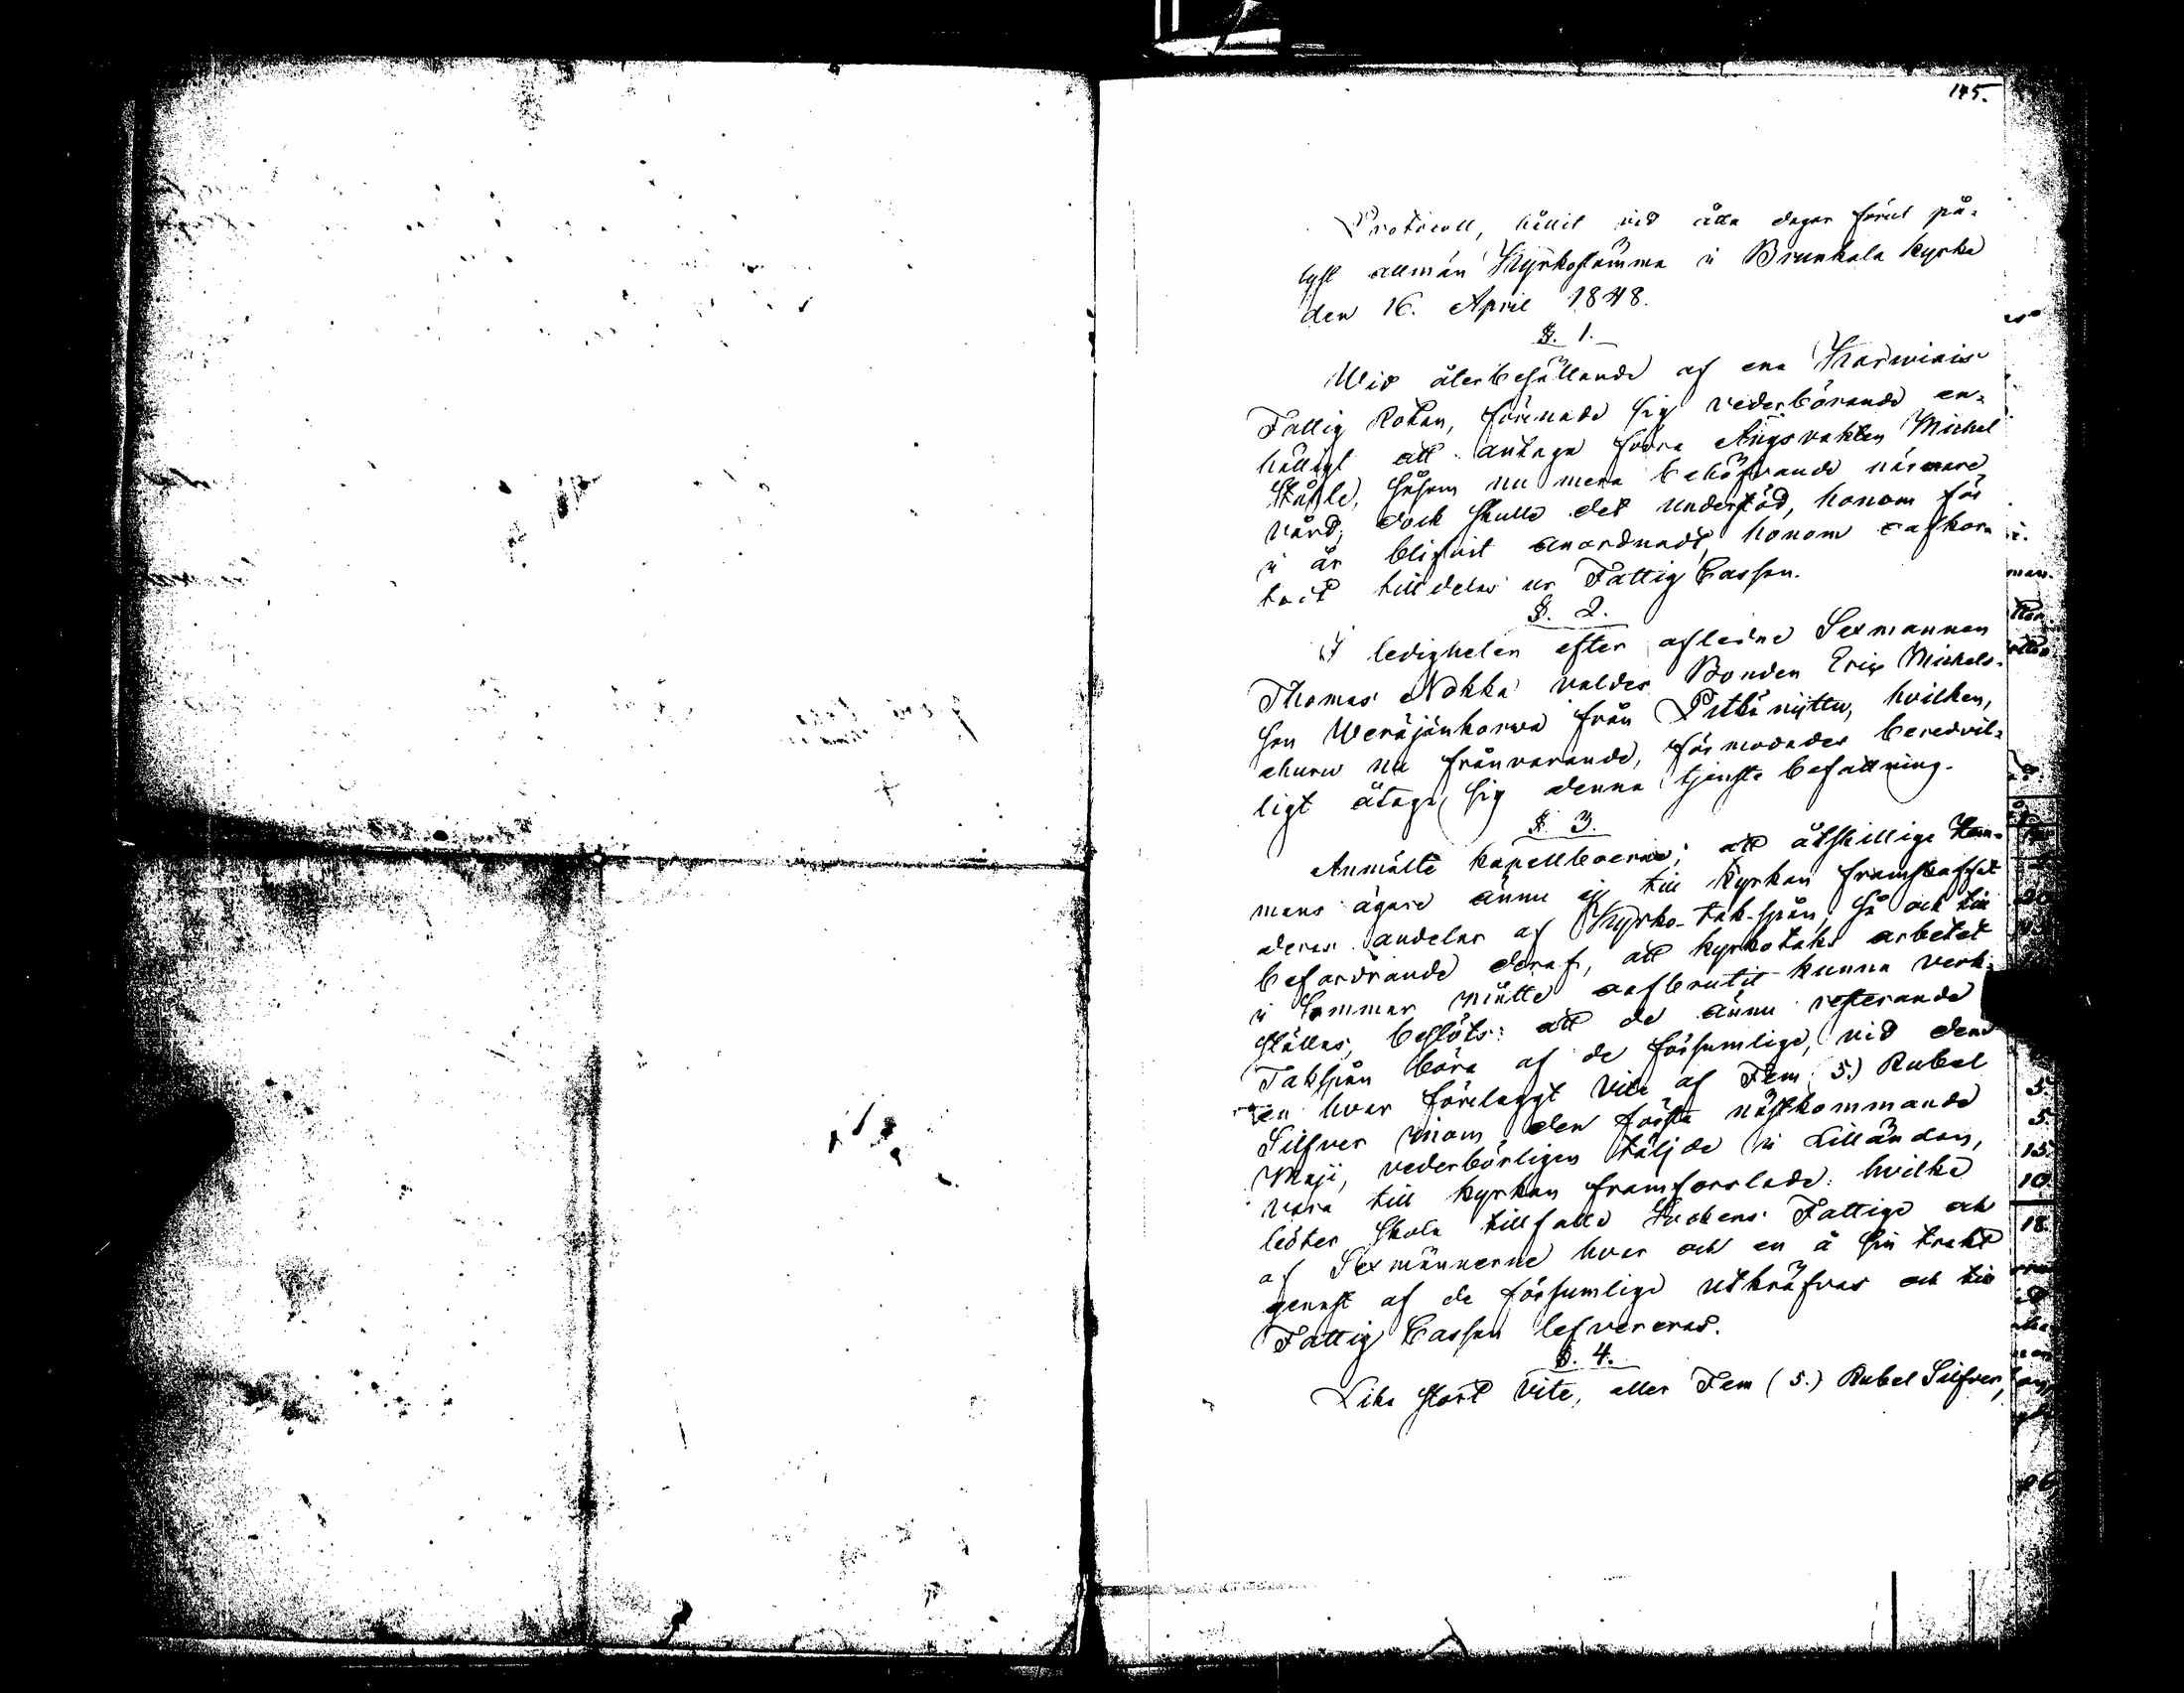 145.
Protocoll, hållit vid åtta dagar förut på-
lyst allmän Kyrkostämma i Brunkala Kyrka
den 16. April 1848.
§. 1.
Wid återbesättande af ena Karwiais
Fattig Rotan, förenade sig vederbörande en-
hälligt att antaga förra Ängsvakten Michel
Ståhle, såsom nu mera behöfvande närmare
vård; dock skulle det understöd, honom för
i år blifvit anordnadt, honom oafkor-
tadt tilldelas ur Fattig Cassan.
§. 2.
I ledigheten efter aflidne Sexmannen
Thomas Nokka valdes Bonden Eric Michels-
son Weräjänkorwa från Pitkäniittu, hvilken,
ehuru nu frånvarande, förmodades beredvil-
ligt åtaga sig denna tjenste befattning.
§. 3.
Anmälte kapellboerne; att åtskillige Hem-
mans ägare ännu ej till Kyrkan framskaffat
deras andelar af Kyrko-tak-spån, så och till
befordrande deraf, att kyrkotaks arbetet
i Sommar måtte oafbrutit kunna verk-
ställas, beslöts: att de ännu resterande
Takspån böra af de försumlige, vid den
en hvar förelaggt vite af Fem (5.) Rubel
Silfver inom den första nästkommande
Maji, vederbörligen täljde i lilländan,
vara till kyrkan framforslade: hvilka
böter skola tillfalla Sockens Fattige och
af Sexmännerne hvar och en å sin trakt
genast af de försumlige utkräfvas och till
Fattig Cassan lefvereras.
§. 4.
Lika stort vite, eller Fem (5.) Rubel Silfver,